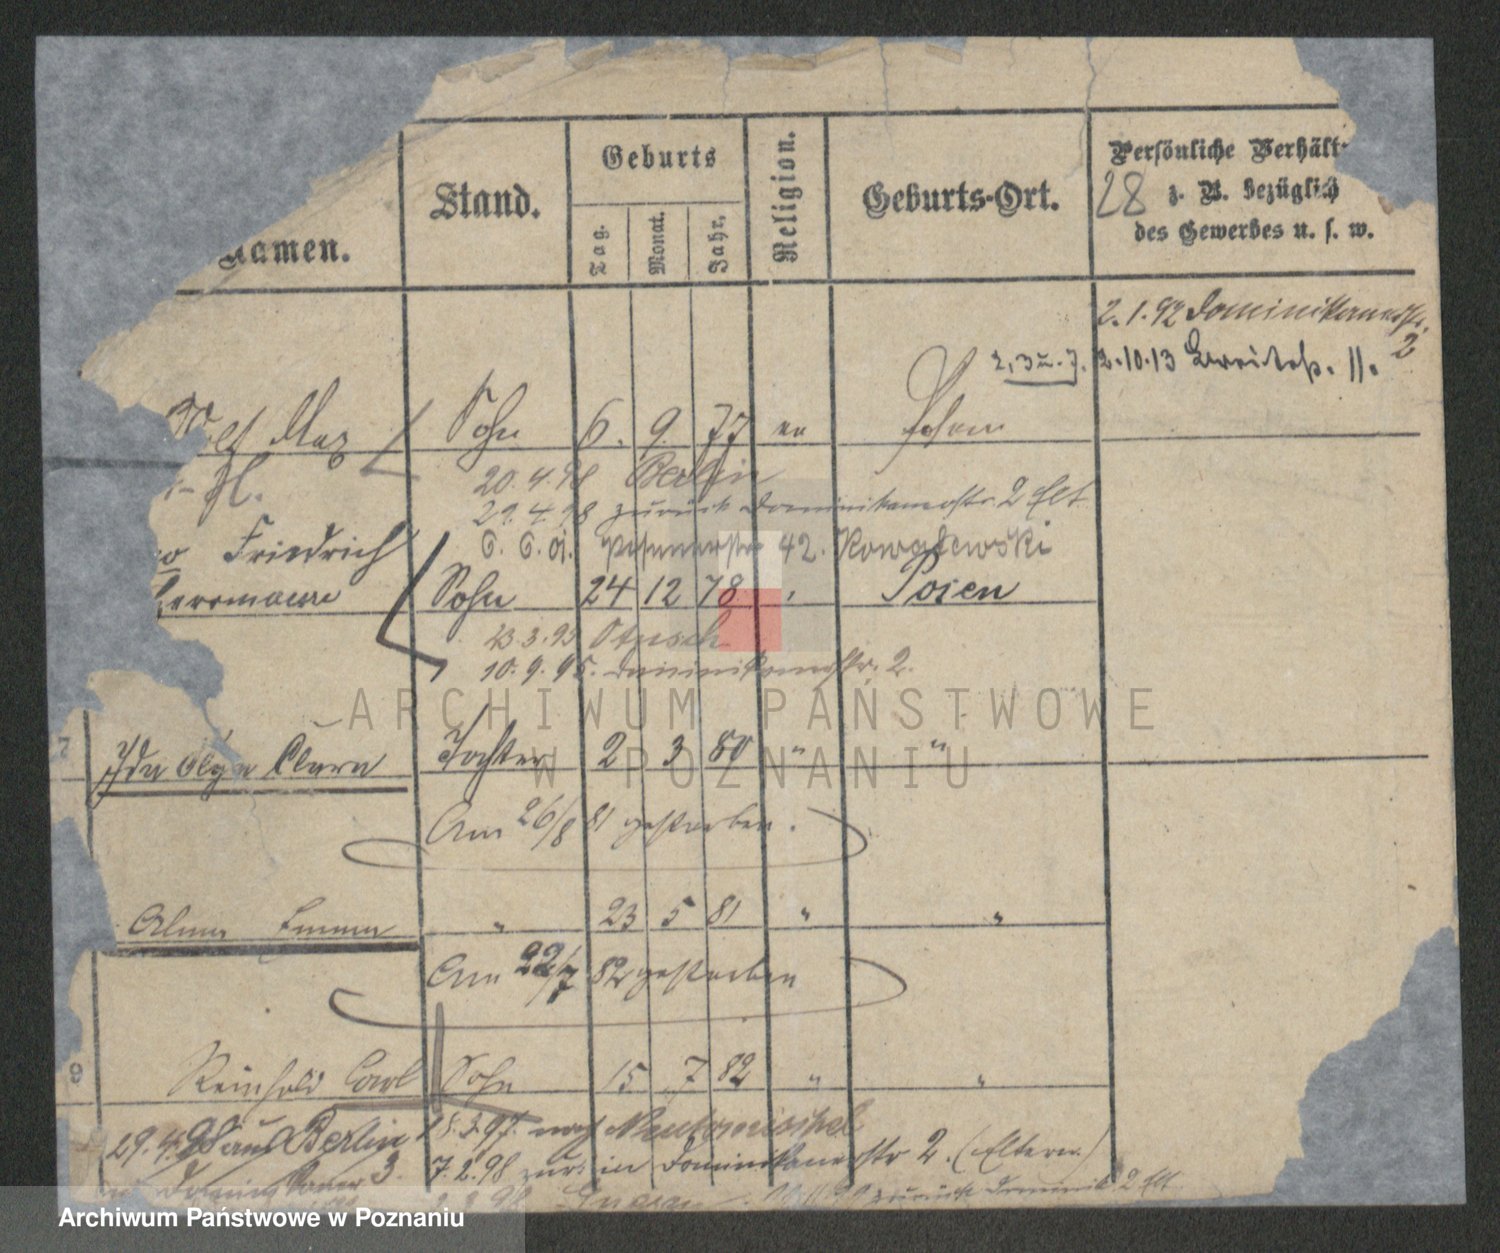 Namen.
Stand.
Geburts
Tag.
Monat.
Jahr.
Religion.
Geburts-Ort.
Persönliche Verhält-
28 z. B. bezüglich
des Gewerbes u. s. w.
2.1.92 Dominikanerstr.
2
2, 3 u. 7. 2.10.13 Breitestr. 11.
Max Sohn 6. 9. 77 ev
20.4.98 Berlin
29.4.98 zurück Dominikanerstr. 2 Elt
Friedrich 6. 6. 01. 42. Kowalewski
Sohn 24 12 78 " Posen
23.3.95 Otusch
10.9.95. Dominikanerstr. 2.
7 Ida Olga Clara Tochter 2 3 80 " "
Am 26/8 81 gestorben.
Alma Emma " 23 5 81 " "
Am 22/7 82 gestorben
9 Reinhold Carl Sohn 15 7 82 " "
29.4.98 aus Berlin 18.3.97. nach Neutomischel
Dominikaner 3. 7.2.98 zur. in Dominikanerstr 2. (Eltern)
zurück Dominik. 2 Elt
ARCHIWUM PAŃSTWOWE
W POZNANIU
Archiwum Państwowe w Poznaniu